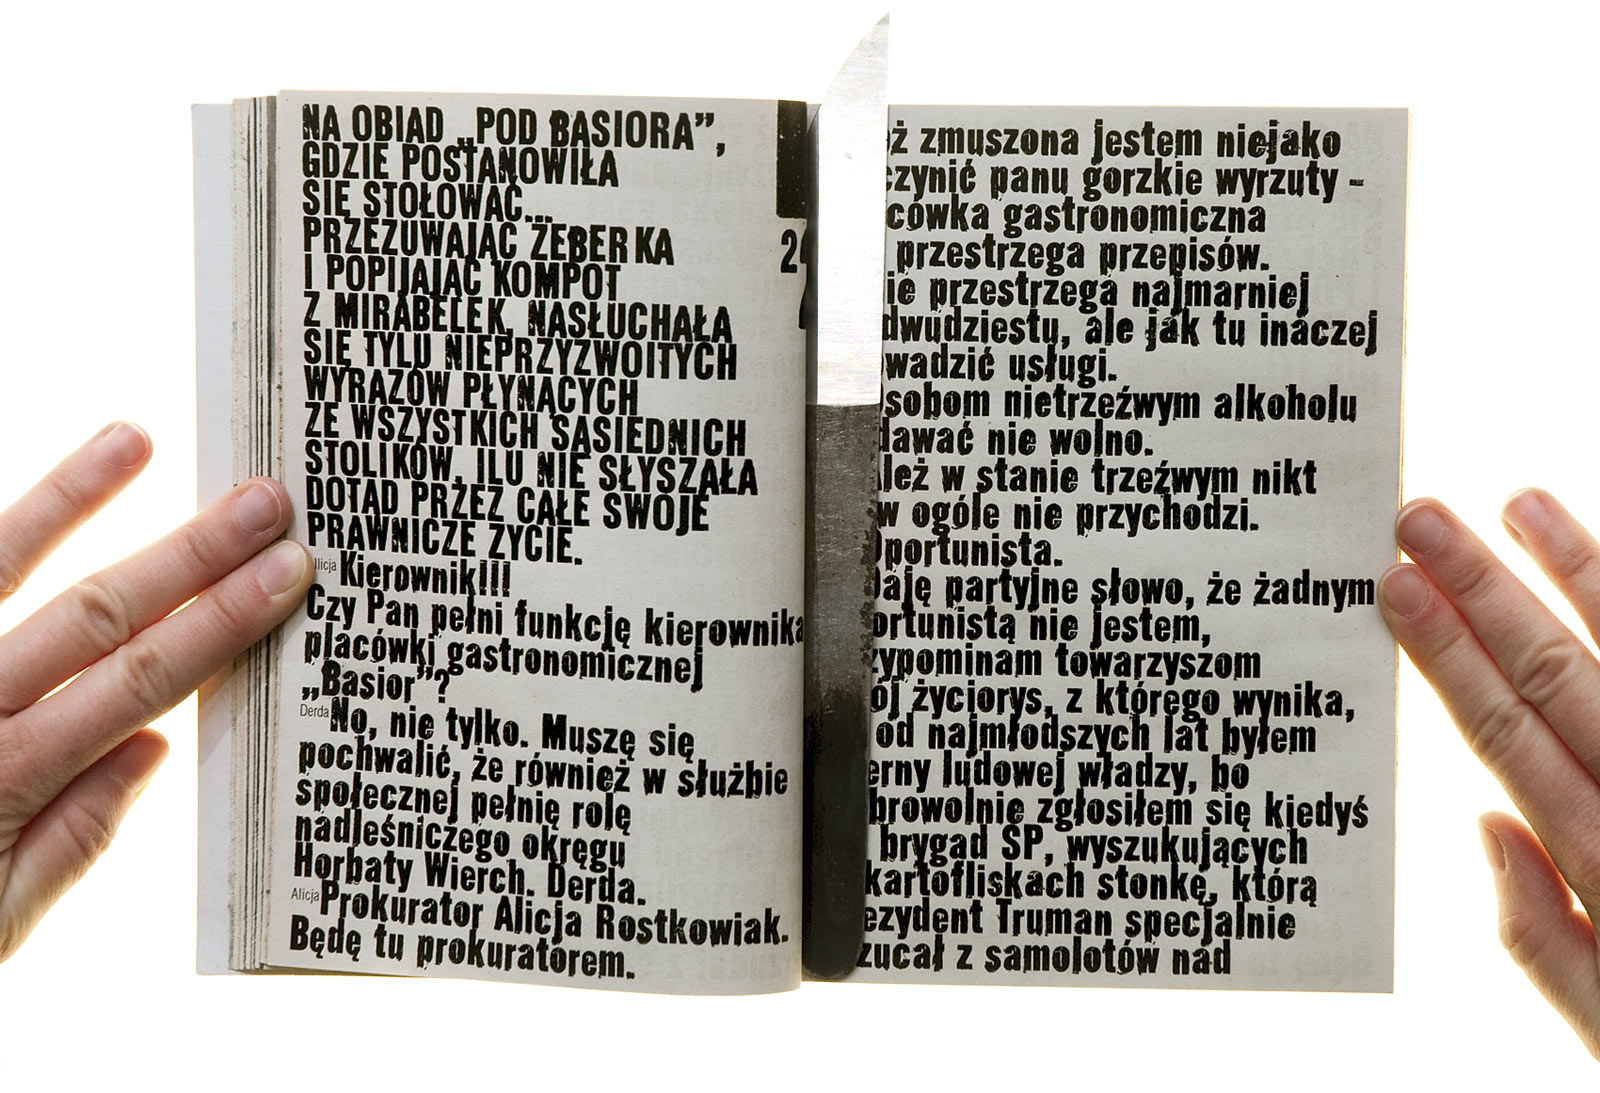 NA OBIAD „POD BASIORA”,
GDZIE POSTANOWIŁA
SIĘ STOŁOWAĆ...
PRZEŻUWAJĄC ŻEBERKA
I POPIJAJĄC KOMPOT
Z MIRABELEK, NASŁUCHAŁA
SIĘ TYLU NIEPRZYZWOITYCH
WYRAZÓW PŁYNĄCYCH
ZE WSZYSTKICH SĄSIEDNICH
STOLIKÓW, ILU NIE SŁYSZAŁA
DOTĄD PRZEZ CAŁE SWOJE
PRAWNICZE ŻYCIE.
Alicja Kierownik!!!
Czy Pan pełni funkcję kierownika
placówki gastronomicznej
„Basior”?
Derda No, nie tylko. Muszę się
pochwalić, że również w służbie
społecznej pełnię rolę
nadleśniczego okręgu
Horbaty Wierch. Derda.
Alicja Prokurator Alicja Rostkowiak.
Będę tu prokuratorem.
zmuszona jestem niejako
czynić panu gorzkie wyrzuty –
cówka gastronomiczna
przestrzega przepisów.
ie przestrzega najmarniej
dwudziestu, ale jak tu inaczej
wadzić usługi.
sobom nietrzeźwym alkoholu
dawać nie wolno.
leż w stanie trzeźwym nikt
w ogóle nie przychodzi.
portunista.
Daję partyjne słowo, że żadnym
ortunistą nie jestem,
zypominam towarzyszom
ój życiorys, z którego wynika,
od najmłodszych lat byłem
erny ludowej władzy, bo
browolnie zgłosiłem się kiedyś
brygad SP, wyszukujących
kartofliskach stonkę, którą
ezydent Truman specjalnie
zucał z samolotów nad